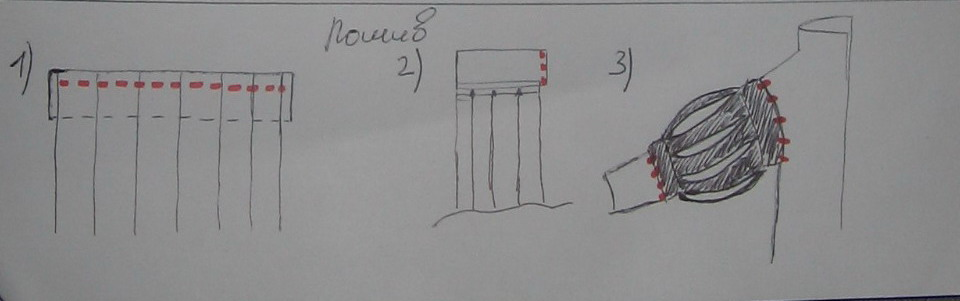 Пошив
1) 2) 3)